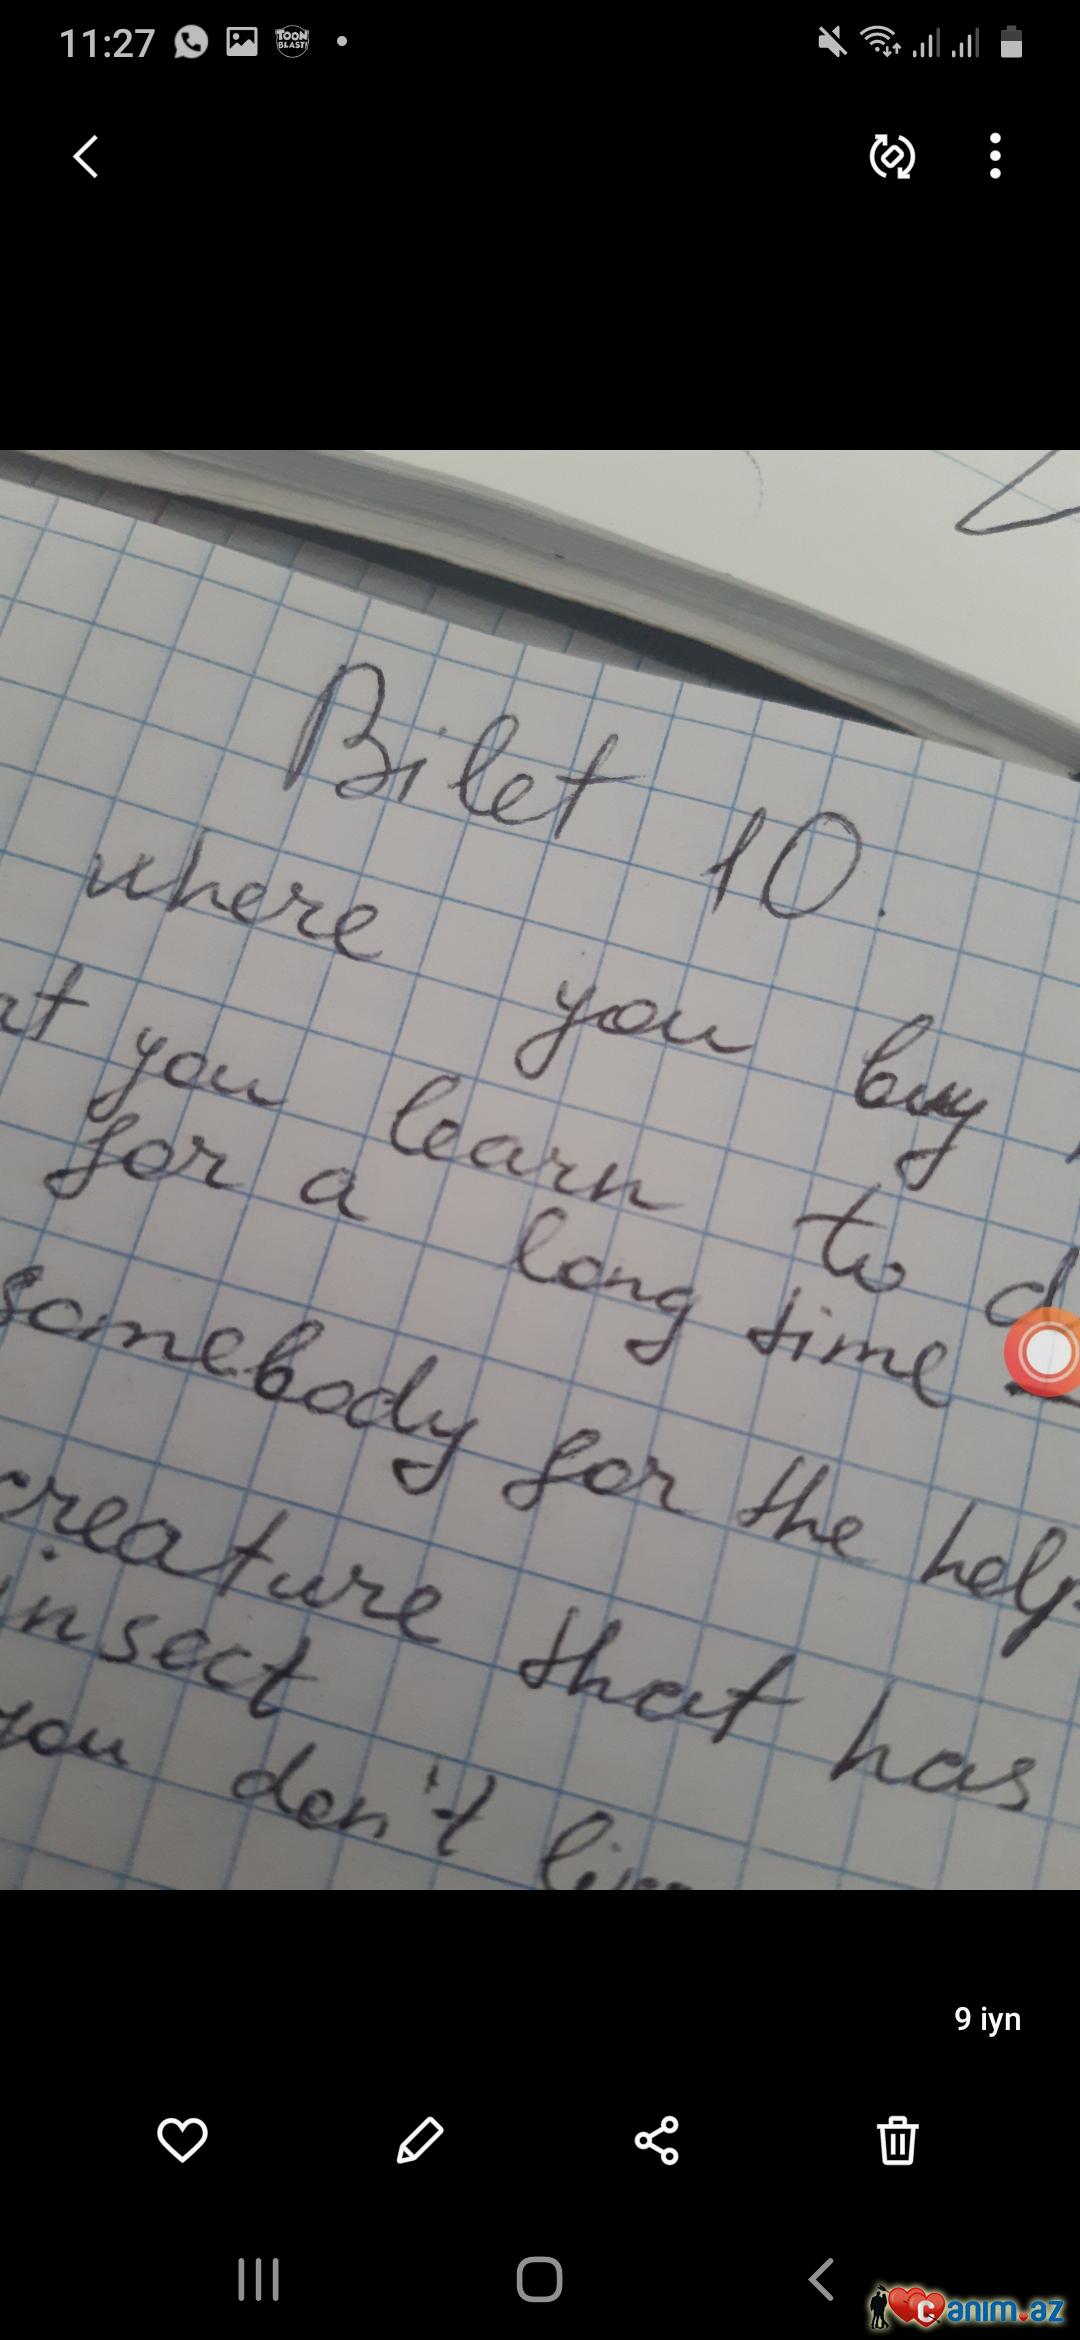 11:27
TOON BLAST!
Bilet 10.
where you buy
at you learn to d
for a long time
somebody for the help
creature that has
insect
you don't live
9 iyn
canim.az